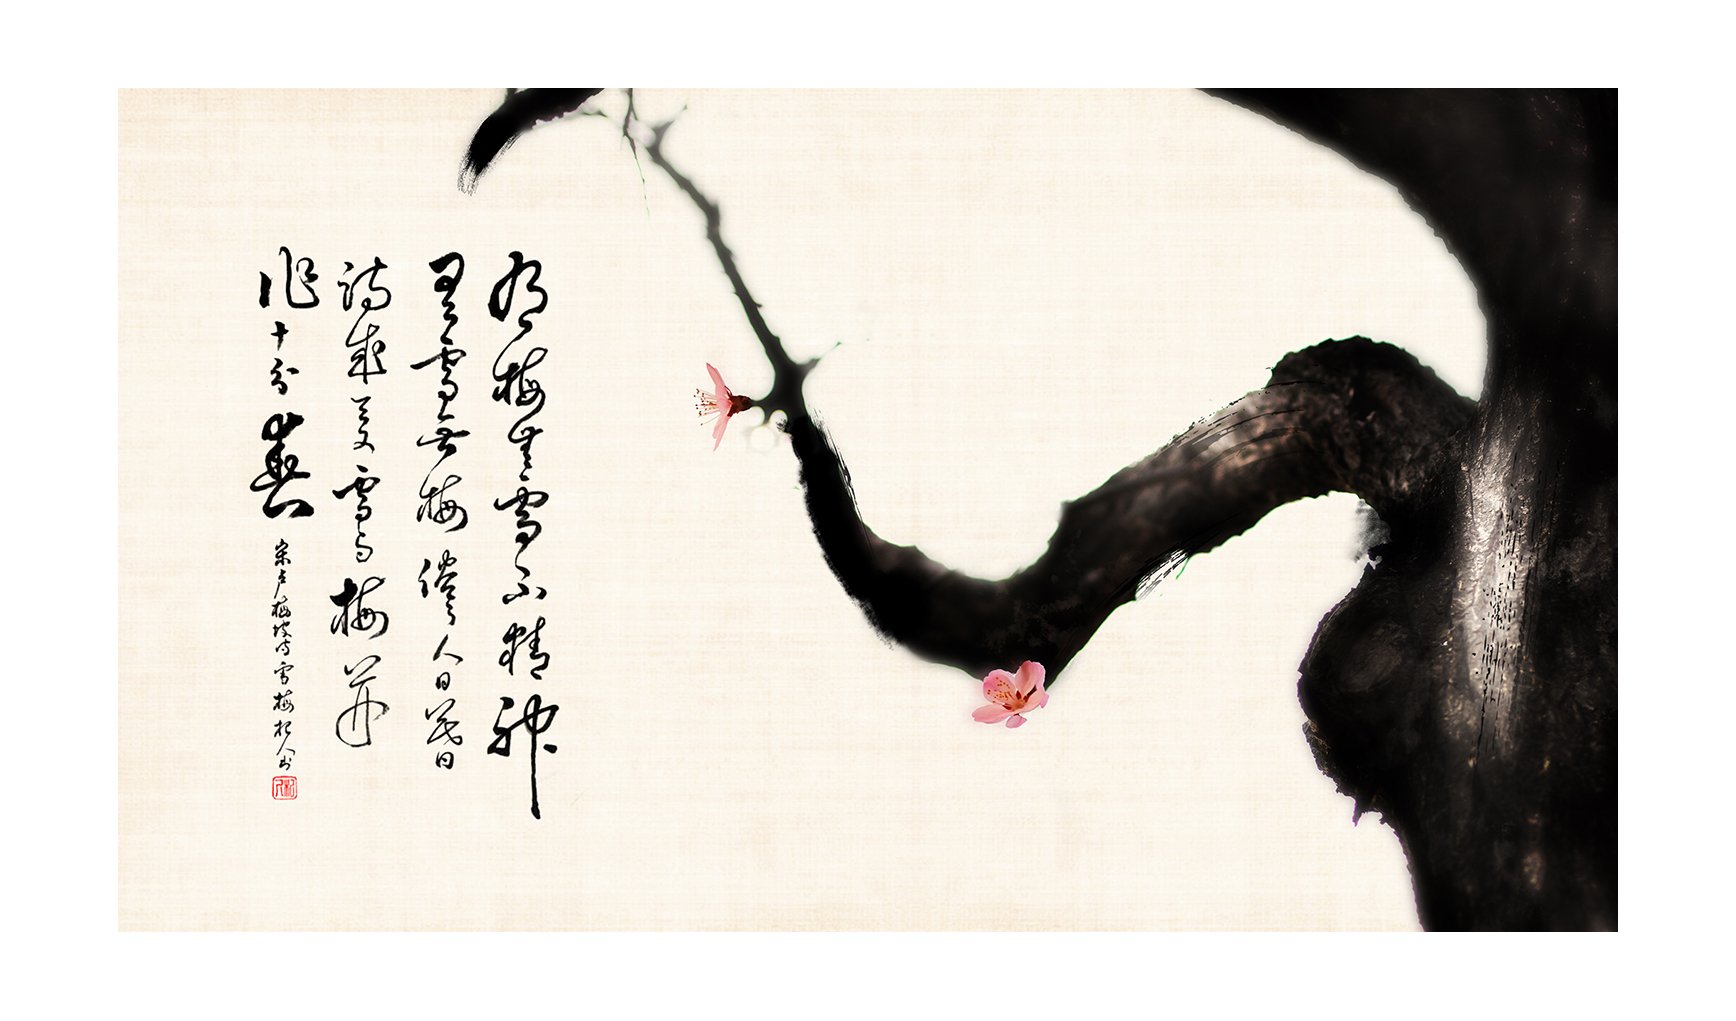 有梅無雪不精神
雪無梅俗了人日暮
詩成天又雪与梅并
作十分春
宋卢梅坡诗雪梅 松人书